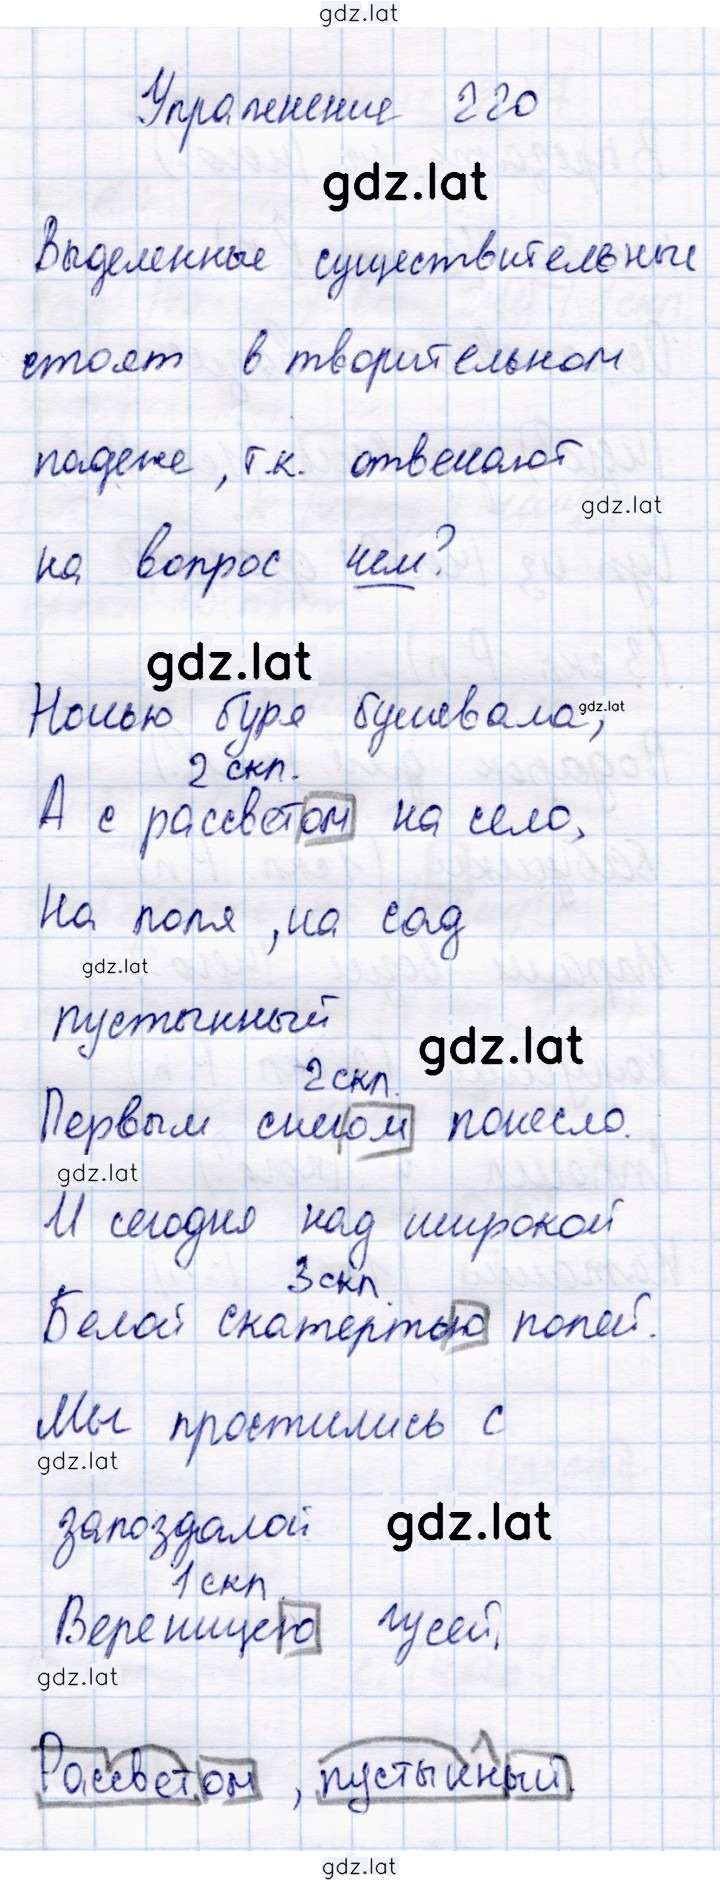 gdz.lat
Упражнение 220
gdz.lat
Выделенные существительные
стоят в творительном
падеже, т.к. отвечают
gdz.lat
на вопрос чем?
gdz.lat
Ночью буря бушевала,
gdz.lat
2 скл.
А с рассветом на село,
На поля, на сад
gdz.lat
пустынный
gdz.lat
2 скл.
Первым снегом понесло.
gdz.lat
И сегодня над широкой
3 скл.
Белой скатертью полей.
Мы простились с
gdz.lat
запоздалой
gdz.lat
1 скл.
Вереницею гусей.
gdz.lat
Рассветом, пустынный.
gdz.lat